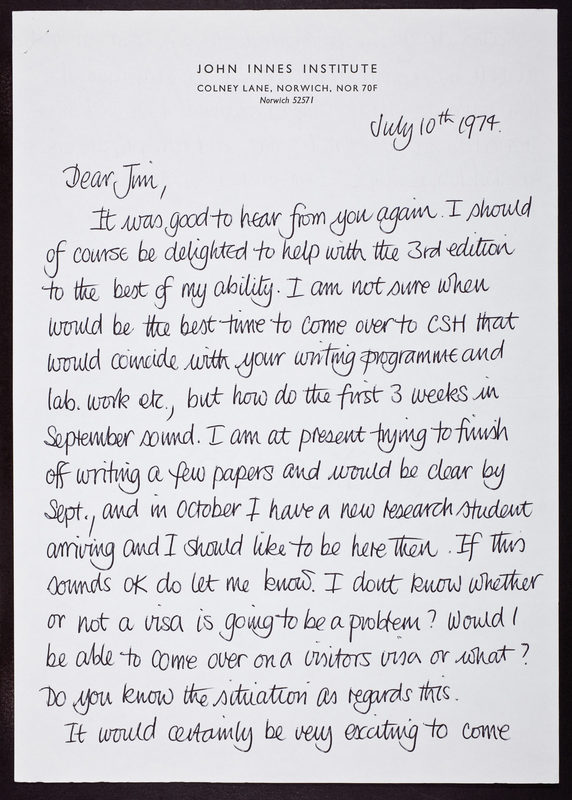 JOHN INNES INSTITUTE
COLNEY LANE, NORWICH, NOR 70F
Norwich 52571
July 10th 1974.
Dear Jim,
It was good to hear from you again. I should
of course be delighted to help with the 3rd edition
to the best of my ability. I am not sure when
would be the best time to come over to CSH that
would coincide with your writing programme and
lab. work etc., but how do the first 3 weeks in
September sound. I am at present trying to finish
off writing a few papers and would be clear by
Sept., and in October I have a new research student
arriving and I should like to be here then. If this
sounds OK do let me know. I dont know whether
or not a visa is going to be a problem? Would I
be able to come over on a visitors visa or what?
Do you know the situation as regards this.
It would certainly be very exciting to come